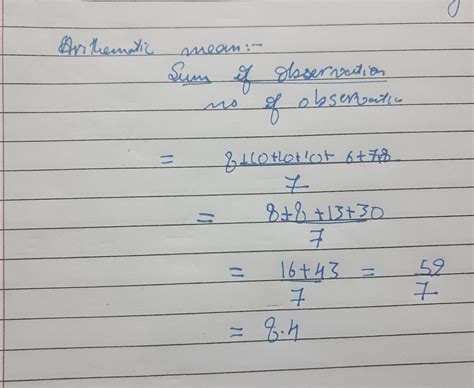 Arithematic mean:-
Sum of observation
no of observatio
= 8+10+10+10+ 6+7+8
7
= 8+8+13+30
7
= 16+43 = 59
7 7
= 8.4